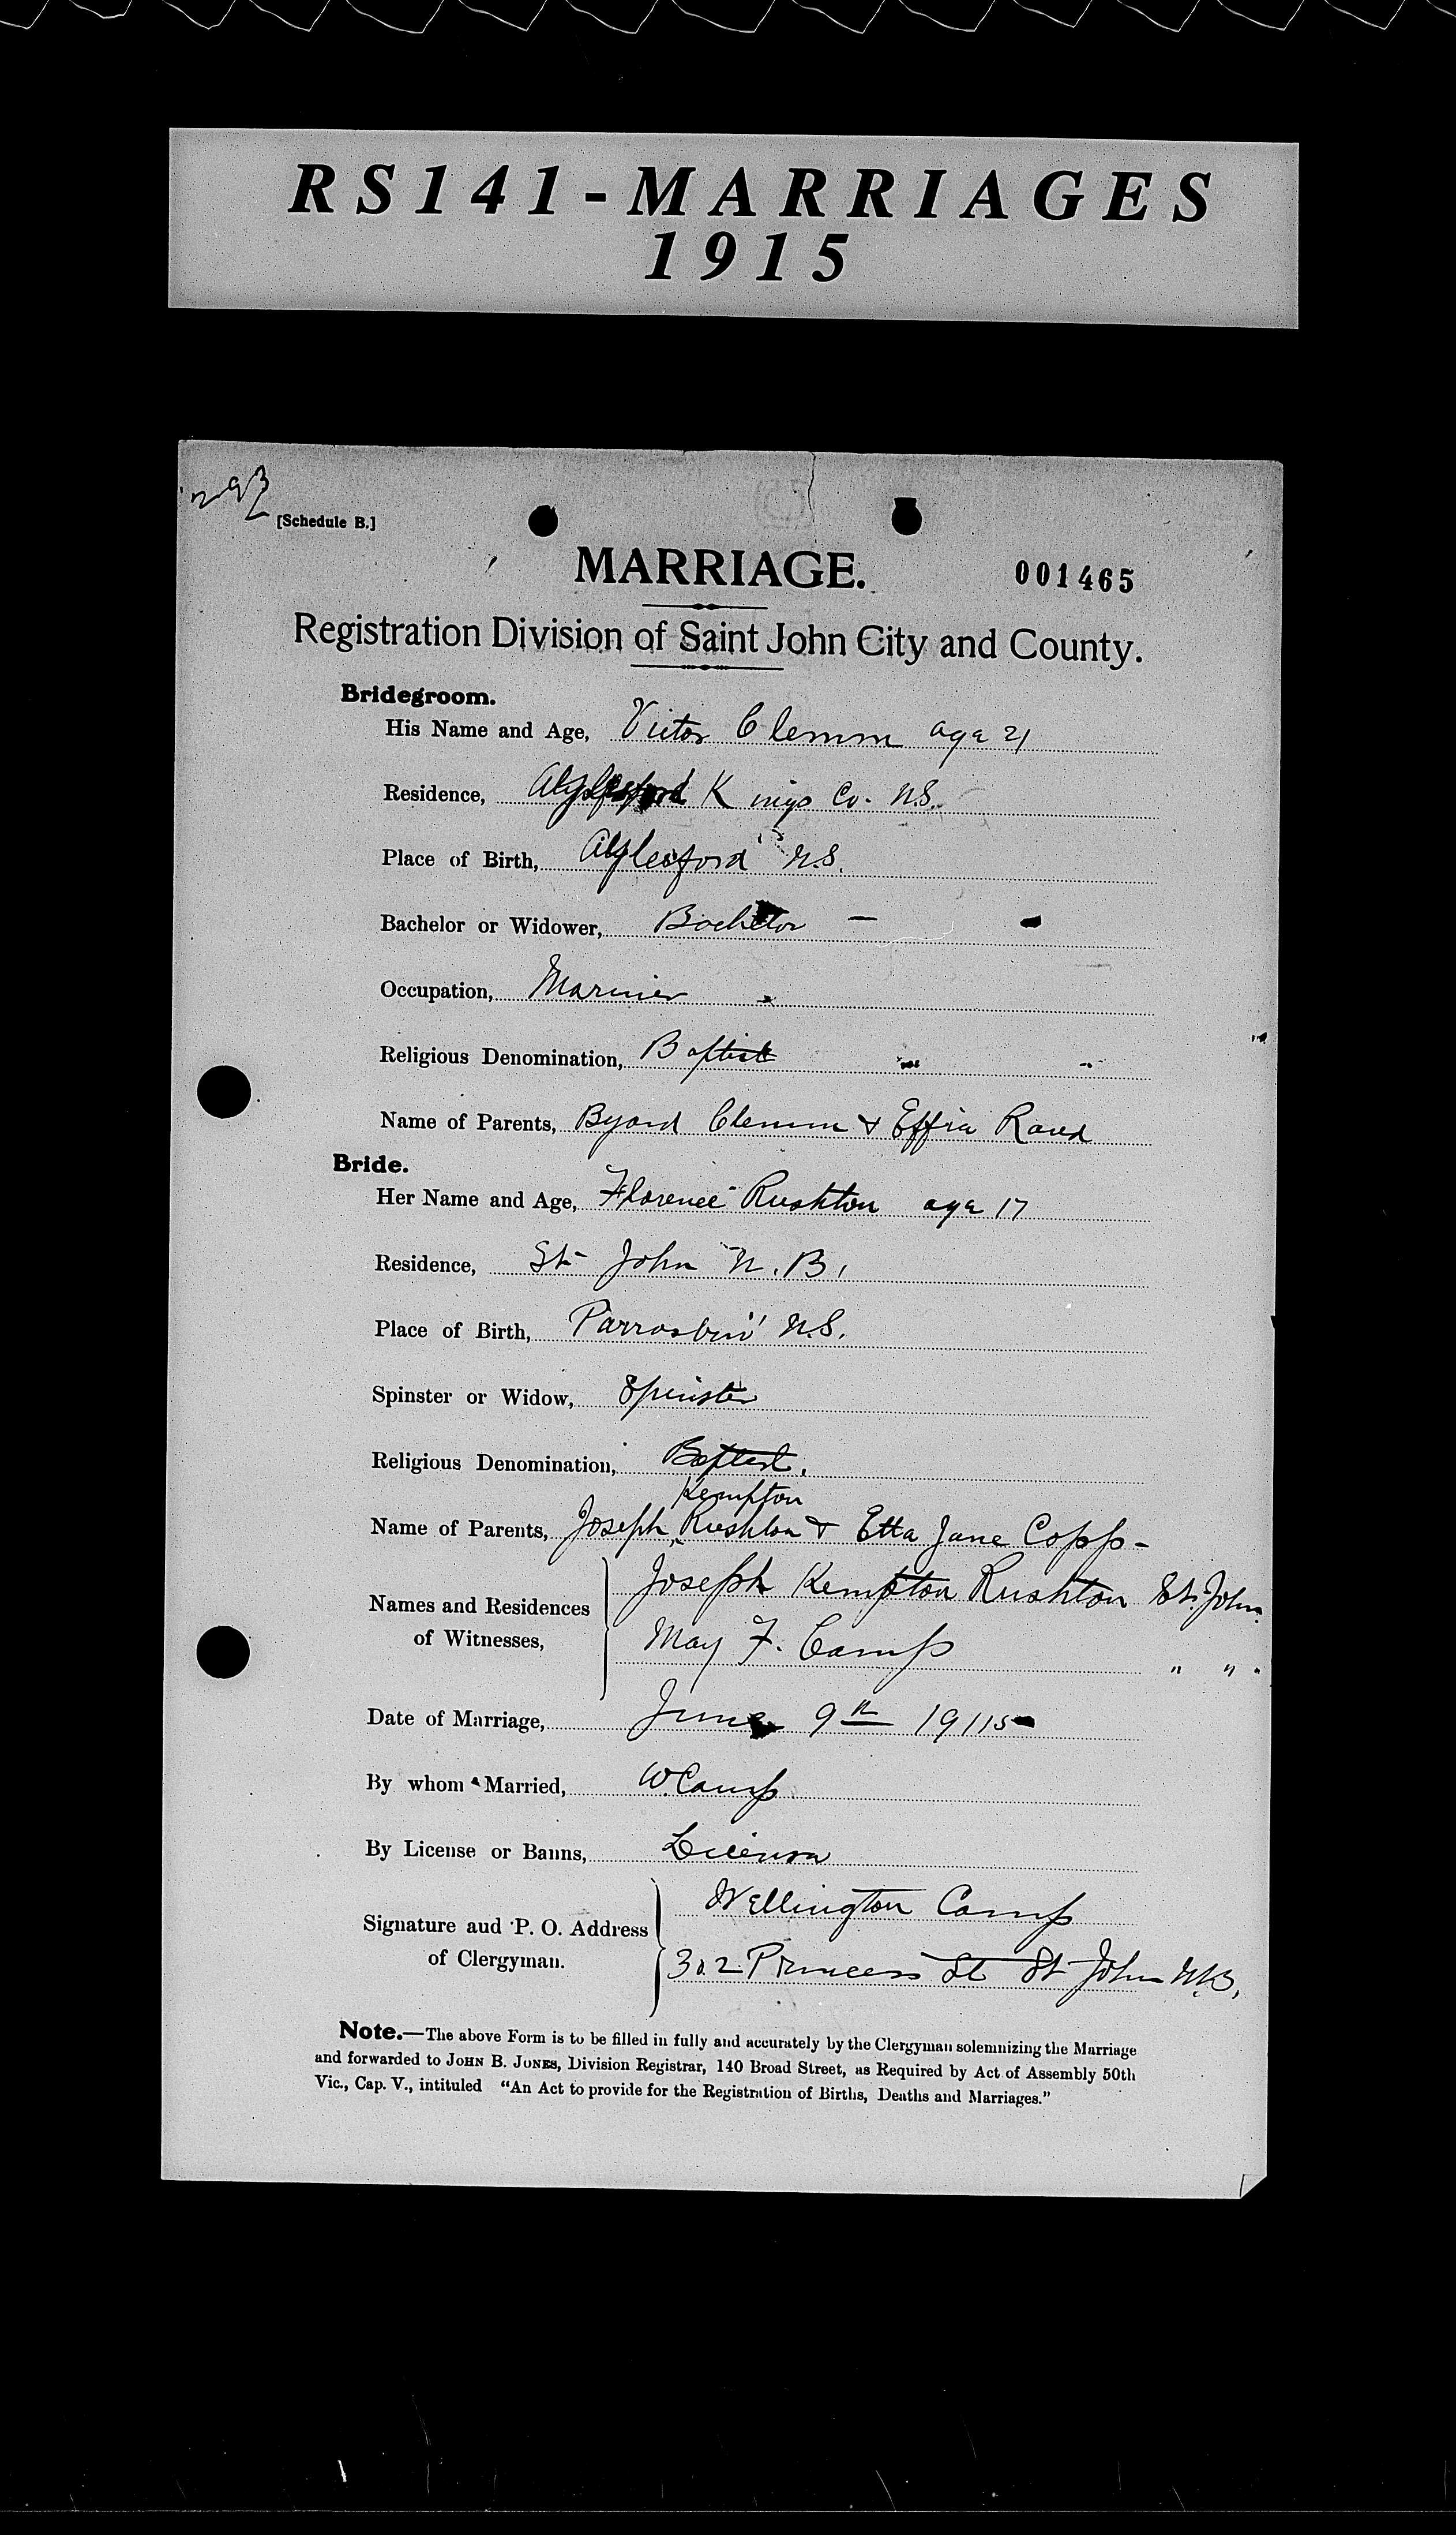 RS141-MARRIAGES
1915
293
[Schedule B.]
MARRIAGE.
001465
Registration Division of Saint John City and County.
Bridegroom.
His Name and Age, Victor Clemm age 21
Residence, Aylesford Kings Co. N.S.
Place of Birth, Aylesford N.S.
Bachelor or Widower, Bachelor —
Occupation, Mariner
Religious Denomination, Baptist
Name of Parents, Byard Clemm & Effie Rand
Bride.
Her Name and Age, Florence Rushton age 17
Residence, St John N.B.
Place of Birth, Parrsboro N.S.
Spinster or Widow, Spinster
Religious Denomination, Baptist.
Kempton
Name of Parents, Joseph Rushton & Etta Jane Copp -
Names and Residences of Witnesses, Joseph Kempton Rushton St. John
May F. Camp " "
Date of Marriage, June 9th 1915
By whom Married, W. Camp
By License or Banns, License
Signature and P. O. Address of Clergyman. Wellington Camp
302 Princess St St John N.B.
Note.—The above Form is to be filled in fully and accurately by the Clergyman solemnizing the Marriage
and forwarded to JOHN B. JONES, Division Registrar, 140 Broad Street, as Required by Act of Assembly 50th
Vic., Cap. V., intituled "An Act to provide for the Registration of Births, Deaths and Marriages."